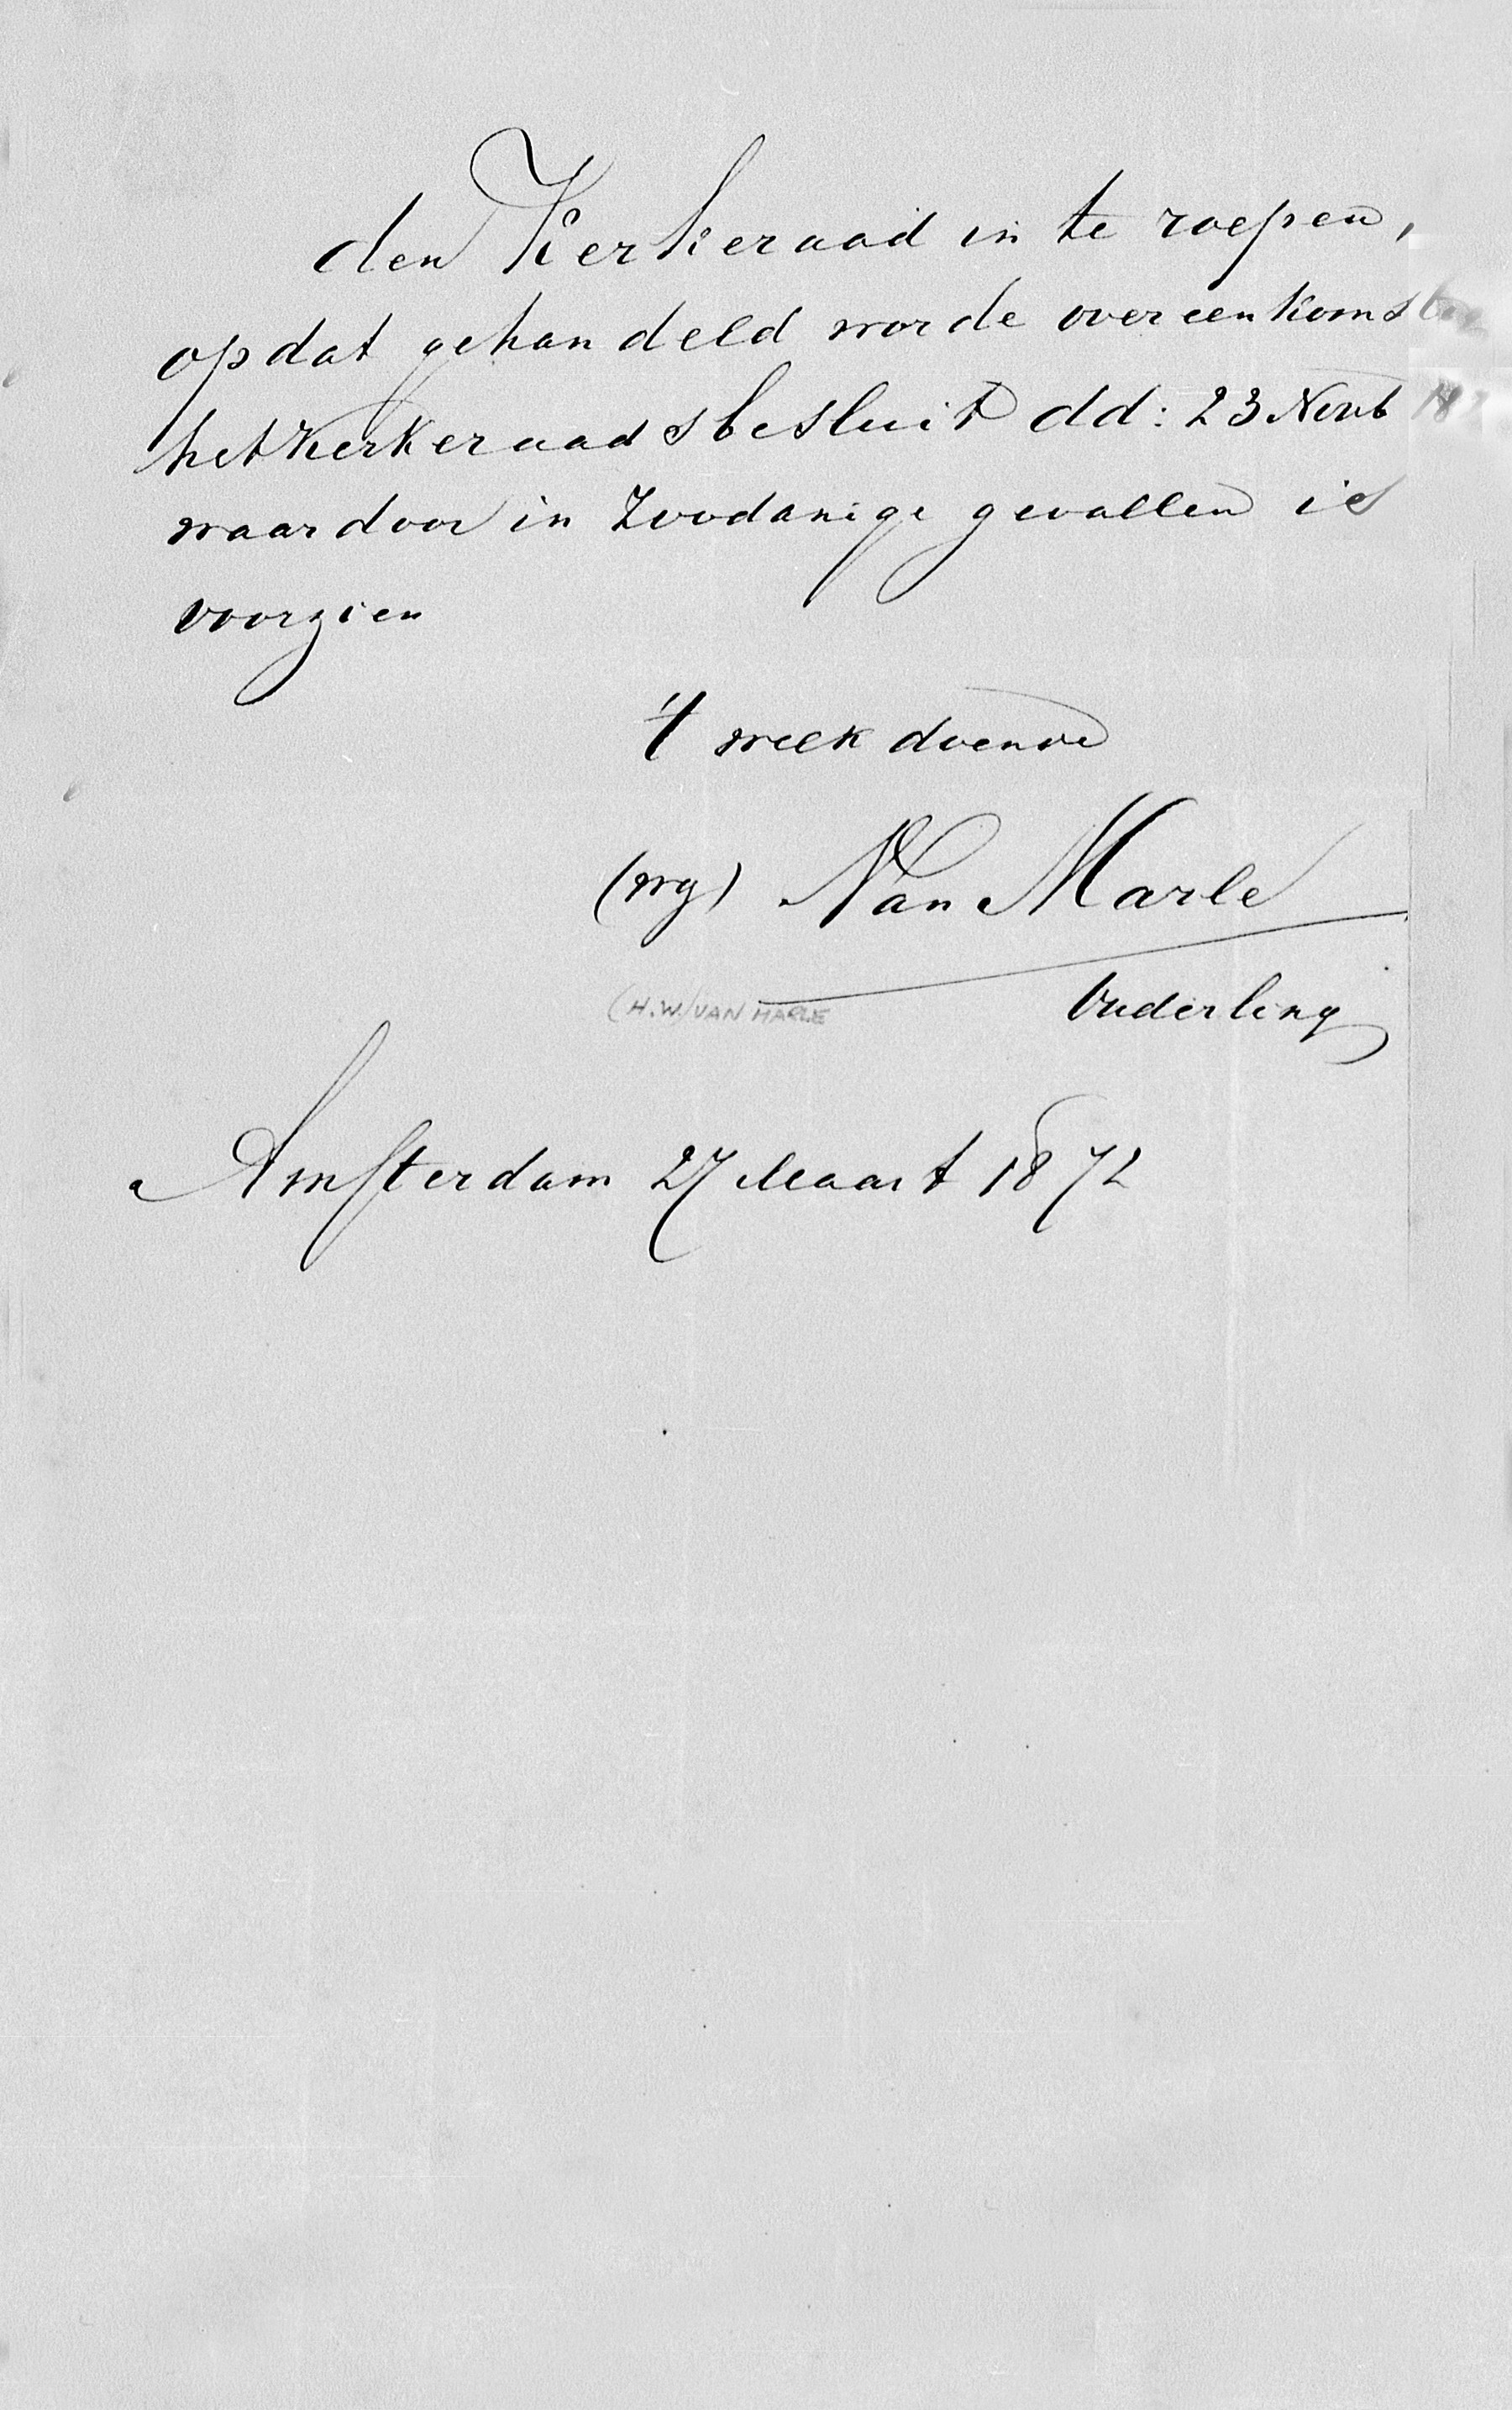 den Kerkeraad in te roepen,
opdat gehandeld worde overeenkomst
het Kerkeraadsbesluit dd: 23 Novb 187
waardoor in Zoodanige gevallen is
voorzien
't welk doende
(wg) Van Marle
(H.W.) VAN MARLE
Ouderling
Amsterdam 27 Maart 1872